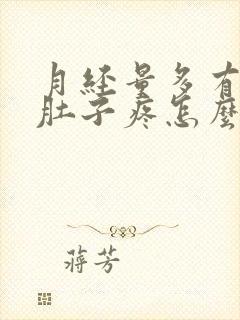 月经量多有
肚子疼怎麽
蒋芳